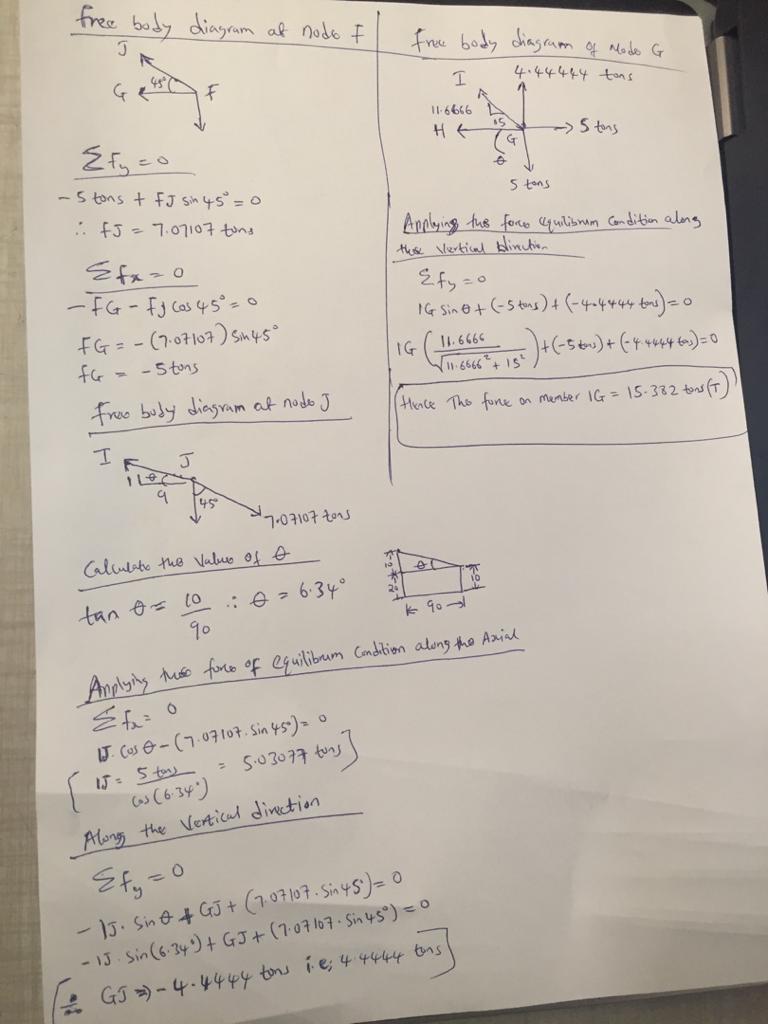 free body diagram at node F
J
G 45° F
Σfy = 0
- 5 tons + FJ sin 45° = 0
∴ FJ = 7.07107 tons
Σfx = 0
- FG - FJ cos 45° = 0
FG = - (7.07107) Sin45°
FG = - 5 tons
free body diagram at node J
I J
1 θ
9 45°
7.07107 tons
Calculate the value of θ
tan θ = 10/90 ∴ θ = 6.34°
θ
10
20
10
90
Applying these force of equilibrium Condition along the Axial
Σfx = 0
IJ. cos θ - (7.07107. sin 45°) = 0
[ IJ = 5 tons / cos (6.34°) = 5.03077 tons ]
Along the Vertical direction
Σfy = 0
- IJ. Sin θ + GJ + (7.07107. Sin 45°) = 0
- IJ. sin(6.34°) + GJ + (7.07107. Sin 45°) = 0
[ ∴ GJ => - 4.4444 tons i.e; 4.4444 tons ]
free body diagram of Node G
I 4.44444 tons
11.6666 15
H G 5 tons
θ
5 tons
Applying this force equilibrum Condition along
these Vertical Direction
Σfy = 0
IG Sin θ + (-5 tons) + (-4.4444 tons) = 0
IG ( 11.6666 / √11.6666² + 15² ) + (-5 tons) + (-4.4444 tons) = 0
Hence The force on member IG = 15.382 tons (T)